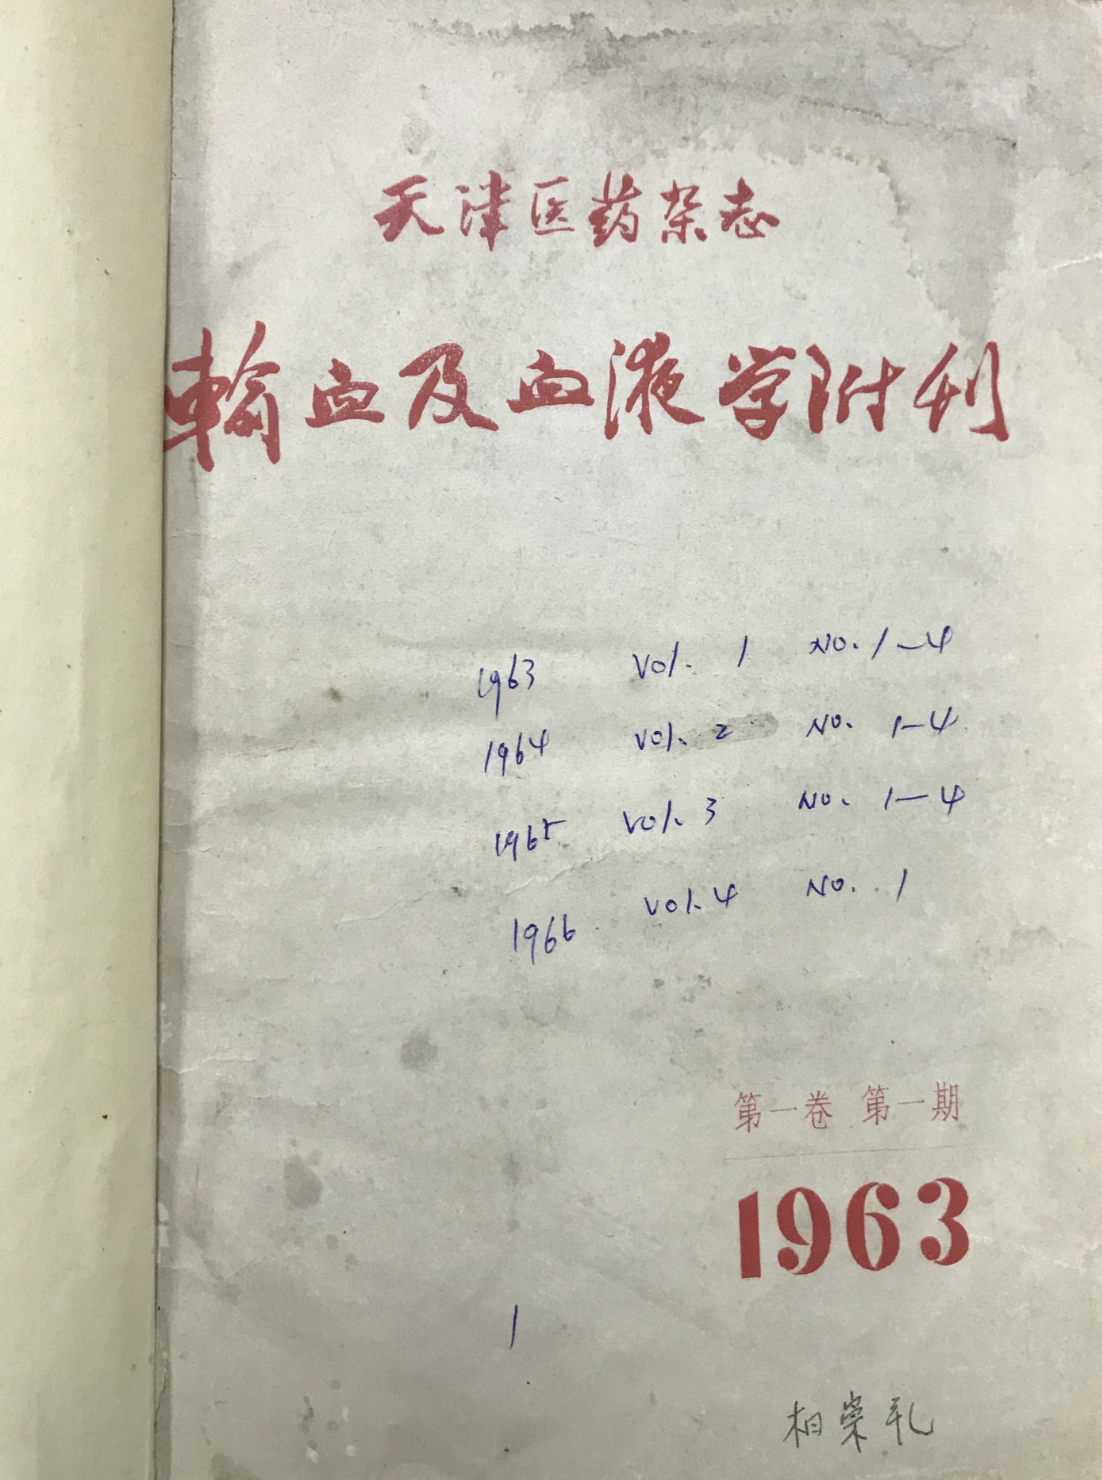 天津医药杂志
輸血及血液学附刊
1963 Vol. 1 No. 1-4
1964 Vol. 2 No. 1-4
1965 Vol. 3 No. 1-4
1966 Vol. 4 No. 1
第一卷 第一期
1963
1